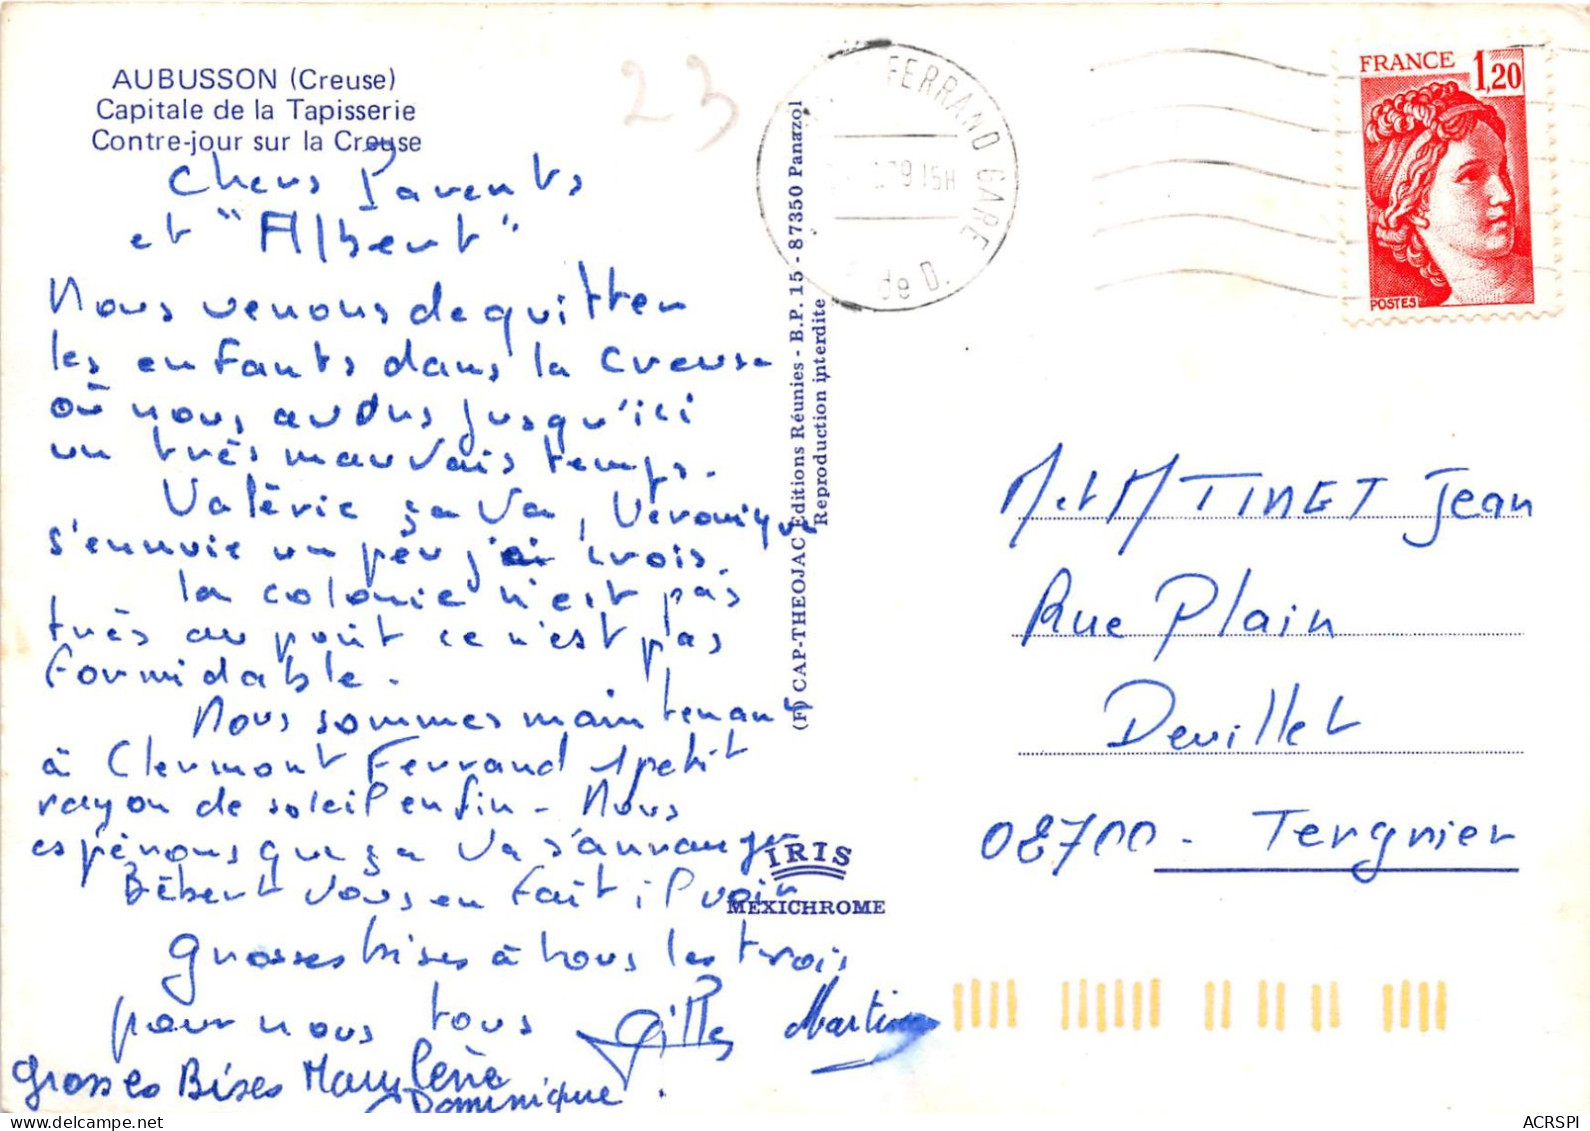 AUBUSSON (Creuse)
Capitale de la Tapisserie
Contre-jour sur la Creuse
23
Chers Parents
et "Albert"
Nous venons de quitter
les enfants dans la Creuse
où nous avons jusqu'ici
un très mauvais temps.
Valérie ça va, Véronique
s'ennuie un peu j'ai crois.
la colonie n'est pas
très au point ce n'est pas
formidable.
Nous sommes maintenant
à Clermont Ferrand 1 petit
rayon de soleil enfin - Nous
espérons que ça va s'arranger
Bébert vous en fait il voir
grosses bises à tous les trois
pour nous tous Gilles Martine
grosses Bises Marylène
Dominique.
(F) CAP-THEOJAC Editions Réunies - B.P. 15 - 87350 Panazol
Reproduction interdite
IRIS
MEXICHROME
FERRAND GARE
79 15H
P. de D.
FRANCE 1,20
POSTES
M et M TINET Jean
Rue Plain
Devillet
08700 - Tergnier
ACRSPI